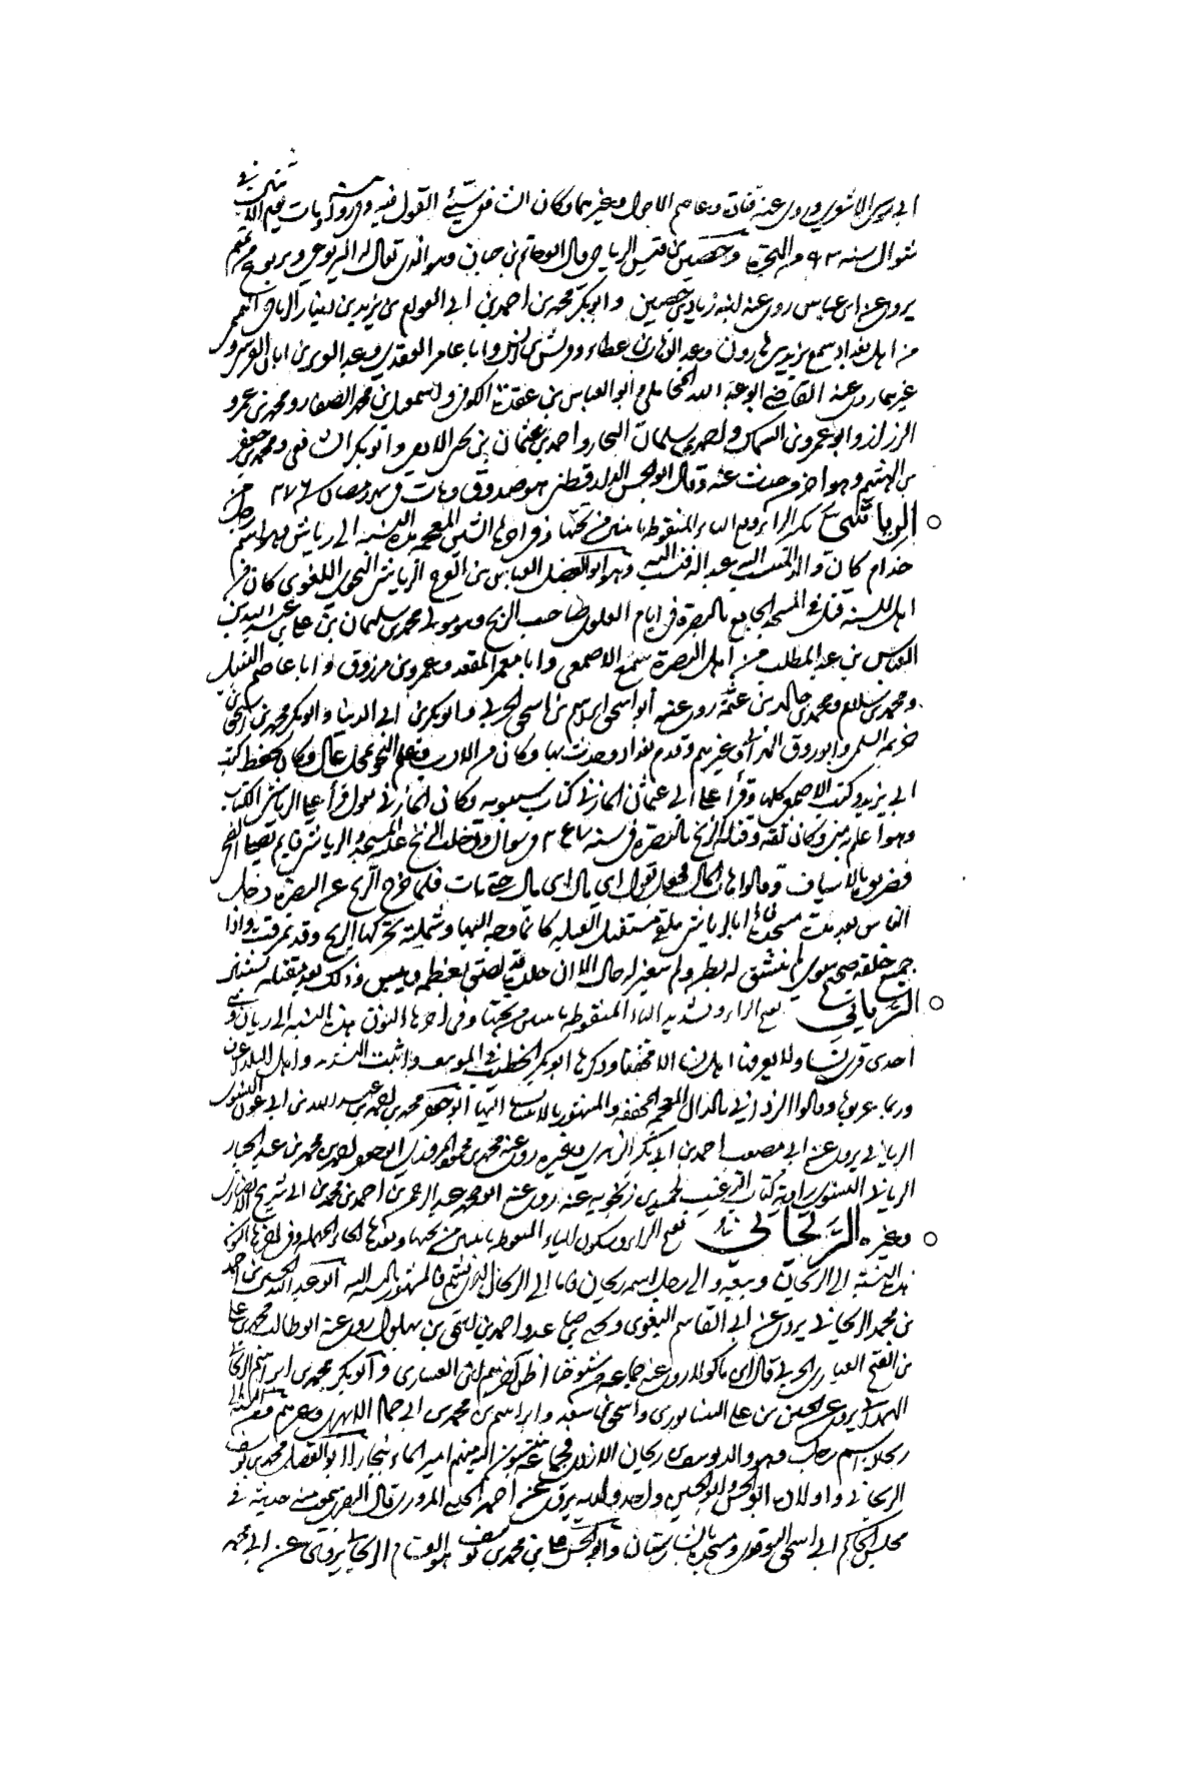 ابي موسى الاشعري وروى عنه قتادة وعاصم الاحول وغيرهما وكان الشافعي سيئ القول فيه ومات يوم الاثنين في
شوال سنة ٩٣ من الهجرة وحصين بن قيس الرياحي قال ابو حاتم بن حبان وهو الذي يقال له اليربوعي ويربوع من تميم
يروي عن ابن عباس روى عنه ابنه زياد بن حصين وابو بكر محمد بن احمد بن ابي العوام بن يزيد بن دينار الرياحي التميمي
من اهل بغداد سمع يزيد بن هارون وعبد الوهاب بن عطاء وقريش بن انس وابا عامر العقدي وعبد العزيز بن ابان القرشي و
غيرهما روى عنه القاضي ابو عبد الله المحاملي وابو العباس بن عقدة الكوفي واسمعيل بن محمد الصفار ومحمد بن عمرو
الرزاز وابو عمرو بن السماك واحمد بن سلمان النجار واحمد بن عثمان بن يحيى الادمي وابو بكر الشافعي ومحمد بن جعفر
بن الهيثم وهو اخر من حدث عنه وقال ابو الحسن الدارقطني هو صدوق ومات في شهر رمضان سنة ٢٧٦
الرياشي بكسر الراء وفتح الياء المنقوطة باثنتين من تحتها وفي اخرها الشين المعجمة هذه النسبة الى رياش وهو اسم رجل من
جذام كان والد المنتسب اليه عبد اله فنسب اليه وهو ابو الفضل العباس بن الفرج الرياشي النحوي اللغوي كان من
اهل السنة قتل في المسجد الجامع بالبصرة في ايام العلوي صاحب الزنج وهو مولى محمد بن سليمان بن علي بن عبد الله بن
العباس بن عبد المطلب من اهل البصرة سمع الاصمعي وابا معمر المقعد وعمرو بن مرزوق وابا عاصم النبيل
ومحمد بن سلام ومحمد بن خالد بن عثمة روى عنه ابو اسحق ابراهيم بن اسحق الحربي وابو بكر بن ابي الدنيا وابو بكر محمد بن اسحق بن
خزيمة السلمي وابو روق الهزاني وغيرهم وقدم بغداد وحدث بها وكان من الادب وعلم النحو بمحل عال وكان يحفظ كتب
ابي يزيد وكتب الاصمعي كلها وقرأ على ابي عثمان المازني كتاب سيبويه وكان المازني يقول قرأ علي الرياشي الكتاب
وهو اعلم به مني وكان ثقة وقتله الزنج بالبصرة في سنة ٢٤٧ في شوال ودخلت الزنج عليه المسجد والرياشي قايم يصلي الضحى
فضربوه بالاسياف وقالوا هات المال فجعل يقول اي مال اي مال حتى مات فلما خرج الزنج عن البصرة دخل
الناس مسجده فاذا بالرياشي ملقى مستقبل القبلة كانما وجه اليها وشملته تحركها الريح وقد تمزقت واذا
جميع خلقه صحيح سوي لم ينشق له بطن ولم يتغير له حال الا ان جلده قد لصق بعظمه ويبس وذلك بعد مقتله بسنتين
الرياني بفتح الراء وتشديد الياء المنقوطة باثنتين من تحتها وفي اخرها النون هذه النسبة الى ريان وهي
احدى قرى نسا ولا يعرفها اهل نسا الا مخففا وذكرها ابو بكر الخطيب في المؤتنف واثبت التشديد واهل البلد اعرف
وربما عربوها وقالوا الرذاني بالذال المعجمة المخففة والمشهور بالانتساب اليها ابو جعفر محمد بن احمد بن عبد الله بن ابي عون النسوي
الرياني يروي عن ابي مصعب احمد بن ابي بكر الزهري وغيره روى عنه محمد بن محمود المروزي ابو جعفر احمد بن محمد بن عبد الجبار
الرياني النسوي راوية كتاب الترغيب لحميد بن زنجويه عنه روى عنه ابو محمد عبد الرحمن بن احمد بن محمد بن ابي شريح الانصاري
وغيره الريحاني بفتح الراء وسكون الياء المنقوطة باثنتين من تحتها وبعدها الحاء المهملة وفي اخرها النون
هذه النسبة الى الريحان وبيعه والى رجل اسمه ريحان فاما الى الريحان الذي يشم فالمشهور بالنسبة اليه ابو عبد الله الحسين بن احمد
بن محمد الريحاني يروي عن ابي القاسم البغوي ويحيى بن صاعد واحمد بن اسحق بن بهلول روى عنه ابو طالب محمد بن علي
بن الفتح العشاري الحربي قال ابن ماكولا روى عنه جماعة من شيوخنا اظن اخرهم ابن العشاري وابو بكر محمد بن ابراهيم الريحاني
الهمداني يروي عن الحسين بن علي النيسابوري واسحق بن سعد وابراهيم بن محمد بن ابي حماد الابهري وغيرهم
رجل اسمه ريحان الازدي فجماعة ينتسبون اليه منهم امير الماء ببخارا ابو الفضل محمد بن يوسف
الريحاني واولاده ابو الحسن وابو الحسين واحمد وعبد الله يروي عن احمد المروزي قال البصري سمعت منه حديثه في
مجلس الحاكم ابي اسحق النوقدي ومسجده بالشارستان وابو الحسن علي بن محمد بن يوسف ابو القاسم الريحاني يروي عن ابي محمد